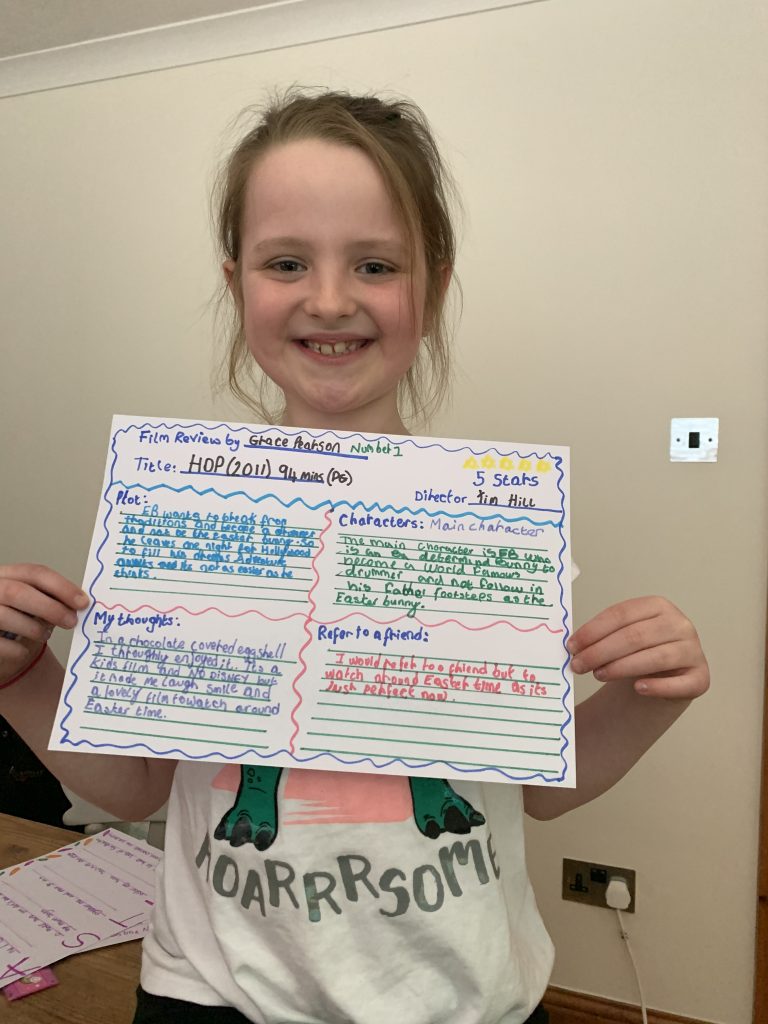 Film Review by Grace Pearson Number 1
Title: HOP (2011) 94 mins (PG)
5 Stars
Director Tim Hill
Plot:
EB wants to break from
traditions and become a drummer
and not be the easter bunny. So
he leaves one night for Hollywood
to fill his dreams Adventure
awaits and its not as easier as he
thinks.
Characters: Main character
The main character is EB who
is an determined bunny to
become a World Famous
drummer and not follow in
his father footsteps as the
Easter bunny.
My thoughts:
In a chocolate covered eggshell
I throughly enjoyed it. It's a
kids film and NO DISNEY but
it made me laugh smile and
a lovely film to watch around
Easter time.
Refer to a friend:
I would refer to a friend but to
watch around Easter time as its
just perfect now.
ROARRRRSOME